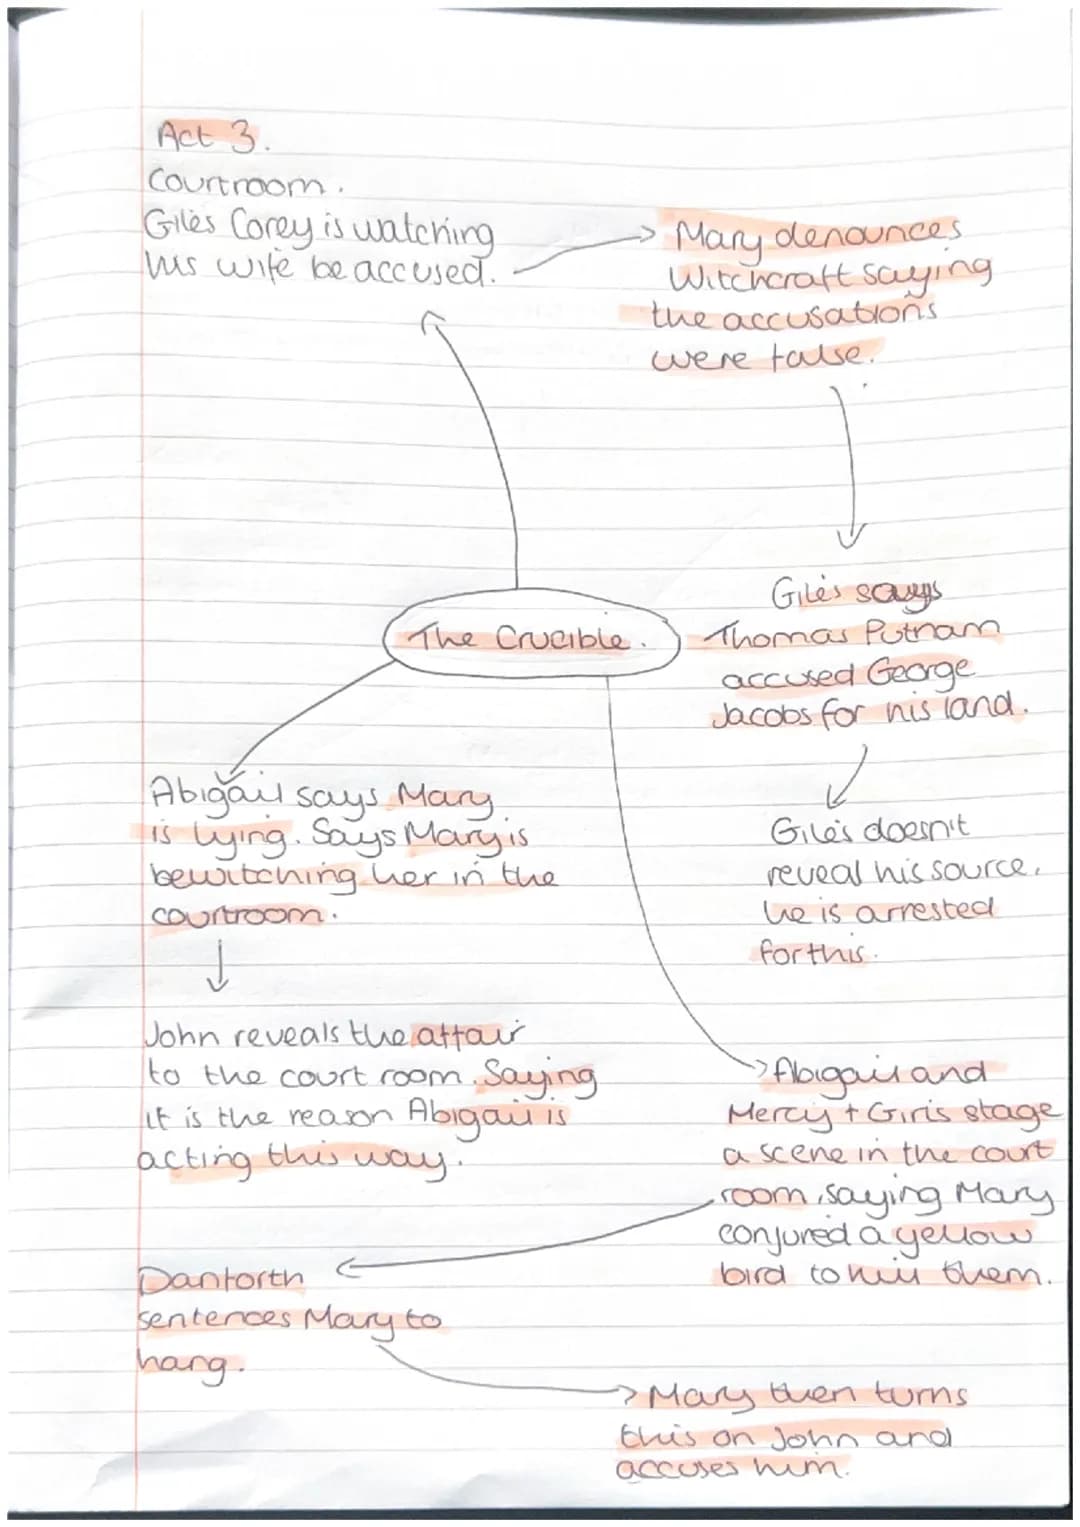 Act 3.
Courtroom.
Giles Corey is watching
his wife be accused.
Mary denounces
Witchcraft saying
the accusations
were false.
Giles says
Thomas Putnam
accused George
Jacobs for his land.
Giles doesn't
reveal his source,
he is arrested
for this.
The Crucible.
Abigail says Mary
is lying. Says Mary is
bewitching her in the
courtroom.
John reveals the affair
to the court room. Saying
it is the reason Abigail is
acting this way.
Abigail and
Mercy + Girls stage
a scene in the court
room, saying Mary
conjured a yellow
bird to kill them.
Danforth
sentences Mary to
hang.
Mary then turns
this on John and
accuses him.